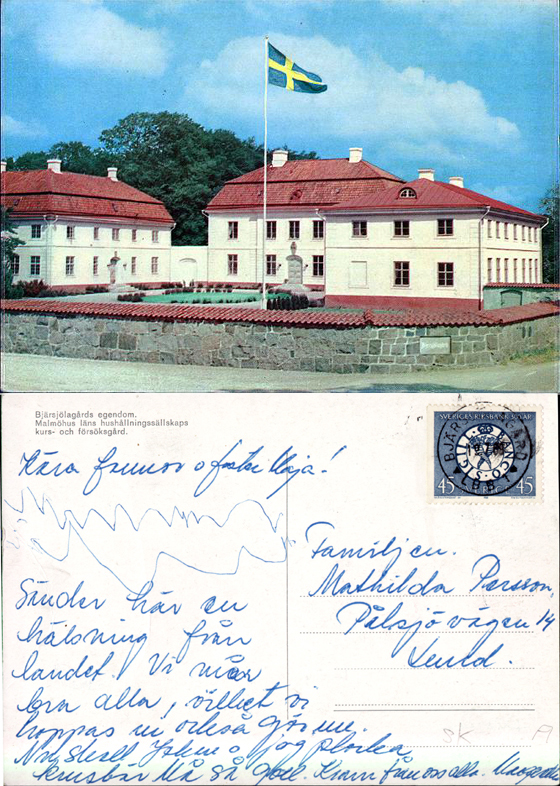 Bjärsjölagårds egendom.
Malmöhus läns hushållningssällskaps
kurs- och försöksgård.
SVERIGES RIKSBANK 300 ÅR
45 45
Kära farmor o faster Maja!
Sänder här en
hälsning från
landet. Vi mår
bra alla, vilket vi
hoppas ni också gör nu.
Nu skall o jag plocka
krusbär. Må så gott. Kram från oss alla.
Familjen.
Mathilda Persson,
Pålsjövägen 14
Lund.
SK A